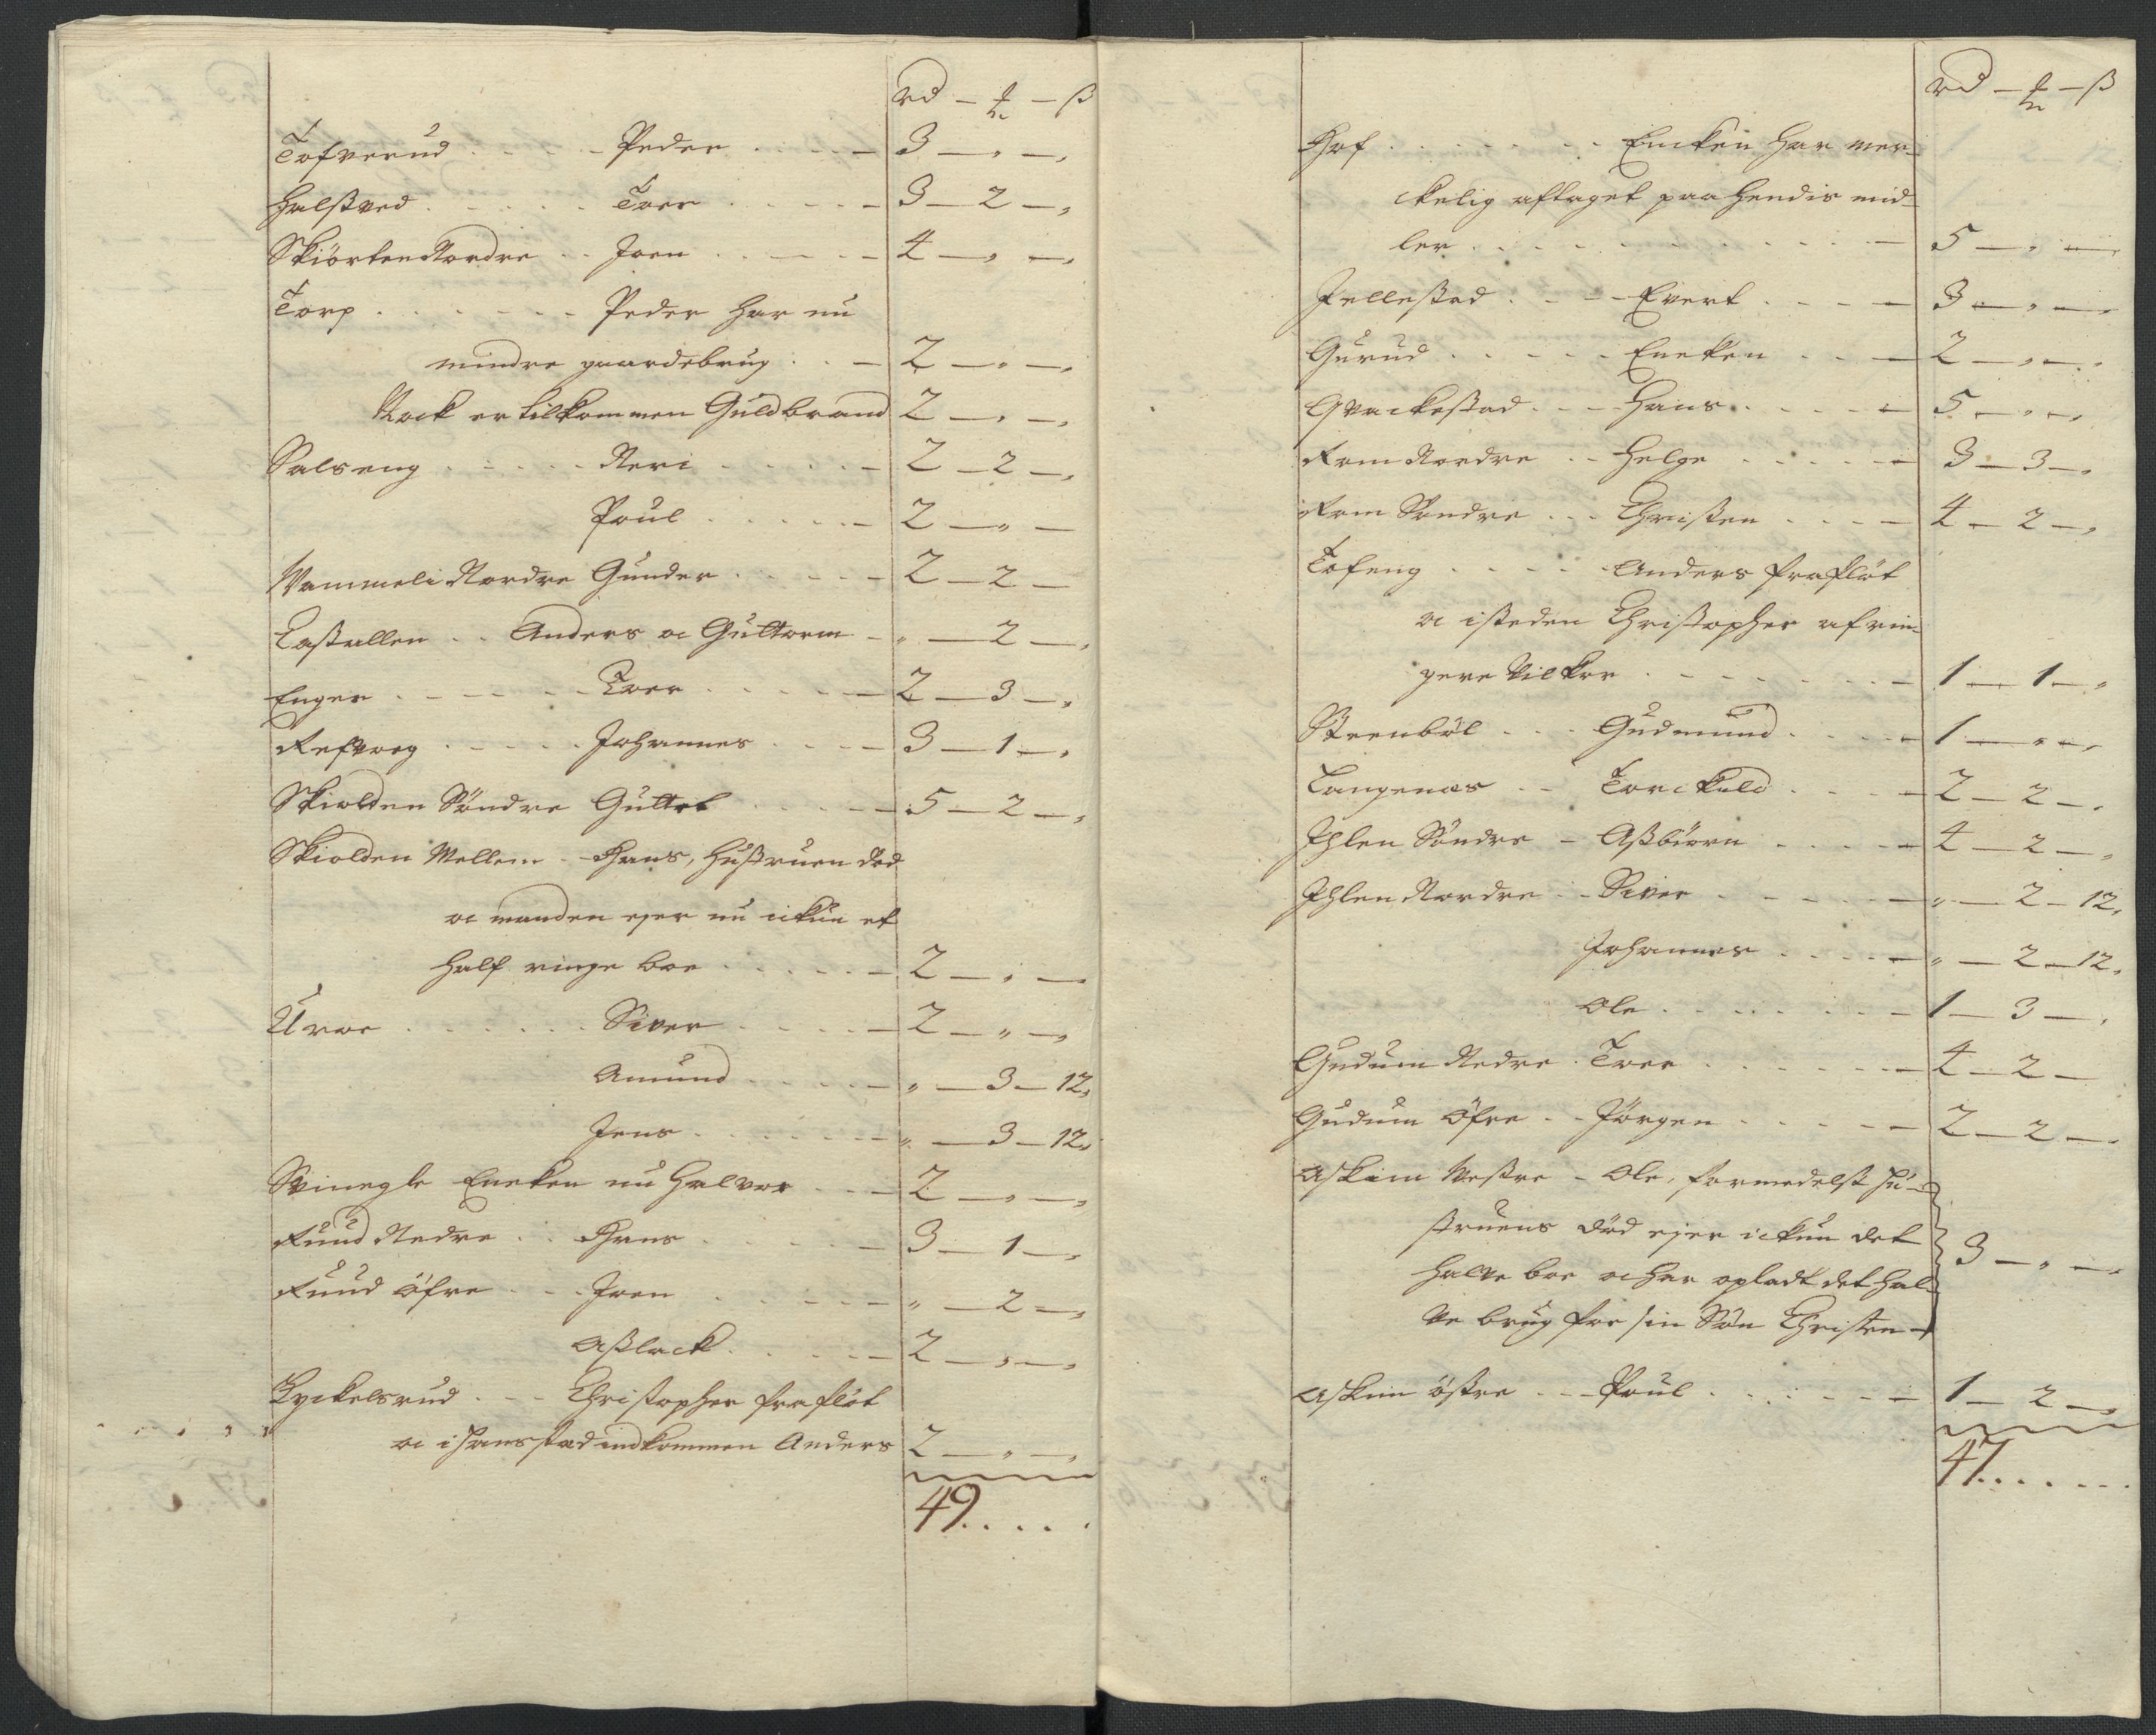 rd – ℔ – ß
Tofverud . . . . – Peder . . . . – 3 – „ – „
Halßved . . . . . Tore . . . . – 3 – 2 – „
Skiörten Nordre . . Joen . . – . – 4 – „ – „
Torp . . . . . . – Peder har nu
mindre gaardebrug . . – 2 – „ – „
Nock er tilkommen Guldbrand 2 – „ – „
Salseng . . . . . Neri . . . . . – 2 – 2 – „
Poul . . . . . – 2 – „ –
Vammeli Nordre Gunder . . . . – 2 – 2 –
Laßallen . . Anders oc Guttorm – „ – 2 – „
Enger . . – . – . . Tore . . . . – 2 – 3 – „
Refvoeg . . . . . Johannes . . . – 3 – 1 – „
Skiolden Söndre Guttel . . . – 5 – 2 – „
Skiolden Mellem . – Hans, hußruen död
oc manden ejer nu ickun et
half ringe boe . . . . – 2 – „ –
Uroe . . . . . . Siver . . . . – 2 – „ – „
Amund . . . . – „ – 3 – 12.
Jens . . . . . . – „ – 3 – 12.
Svinegle Encken nu Halvor . . – 2 – „ – „
Ruud Nedre . . Hans . . . . – 3 – 1 – „
Ruud Öfre . . . Joen . . . . – „ – 2 – „
Aßlack . . . . . – 2 – „ – „
Kyckelsrud . – – Christopher frafløt
oc i hans stad indkommen Anders 2 – „ – „
49. . . . .
rd – ℔ – ß
Hof . . . . . . . Encken har mer-
ckelig aftaget paa hendis mid-
ler . . . . . . . . . . . – 5 – „ –
Jelleßad . . . – Evert . . . – 3 – „ –
Gurud . . . . . Encken . . – 2 – „ –
Qvackeßad . . – Hans . . . . – 5 – „ – „
Rom Nordre . . Helge . . . . . – 3 – 3 – „
Rom Söndre . . . Christen . . . – 4 – 2 – „
Tofeng . . . . . Anders frafløt
oc isteden Christopher af rin-
gere vilkor . . . . . . . – 1 – 1 – „
Steenböl . . . Gudmund . . . . – 1 – „ – „
Langenæs . . Torckild . . . – 2 – 2 – „
Ihlen Söndre – Aßbiörn . . . . – 4 – 2 – „
Ihlen Nordre . . Siver . . . . . – „ – 2 – 12.
Johannes . . . . – „ – 2 – 12.
Ole . . . . . . . – 1 – 3 – „
Gudum Nedre . Tore . . . . . . – 4 – 2 –
Gudum Öfre . . Jörgen . . . . . – 2 – 2 – „
Askim Veßre – Ole, formedelst hu-
ßruens död ejer ickun det
halve boe oc har opladt det hal-
ve brug for sin Sön Christen – 3 – „ – „
AskimÖßre . . – Poul . . . . . . – 1 – 2 – „
47. . . . . .